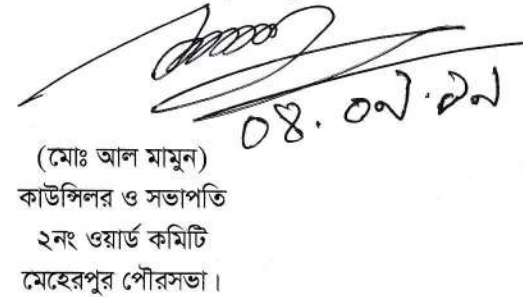 ০৪. ০৯. ১৯
(মোঃ আল মামুন)
কাউন্সিলর ও সভাপতি
২নং ওয়ার্ড কমিটি
মেহেরপুর পৌরসভা।